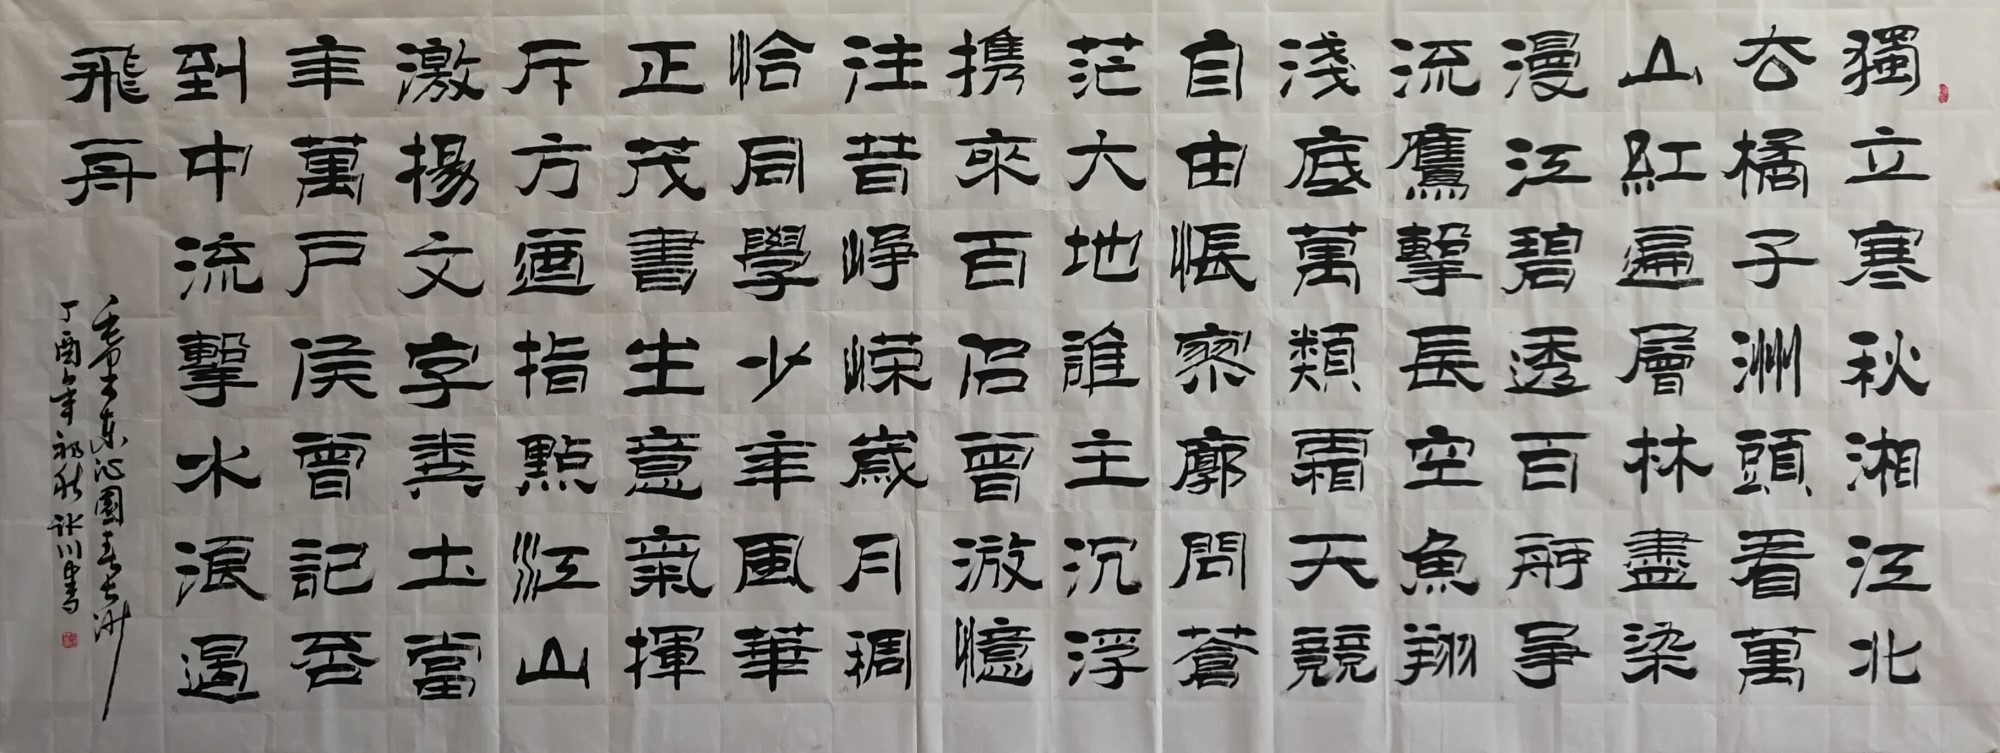 獨立寒秋湘江北
去橘子洲頭看萬
山紅遍層林盡染
漫江碧透百舸爭
流鷹擊長空魚翔
淺底萬類霜天競
自由悵寥廓問蒼
茫大地誰主沉浮
携來百侣曾游憶
往昔崢嶸歲月稠
恰同學少年風華
正茂書生意氣揮
斥方遒指點江山
激揚文字糞土當
年萬户侯曾記否
到中流擊水浪遏
飛舟
毛泽东沁園春长沙
丁酉年初秋川書